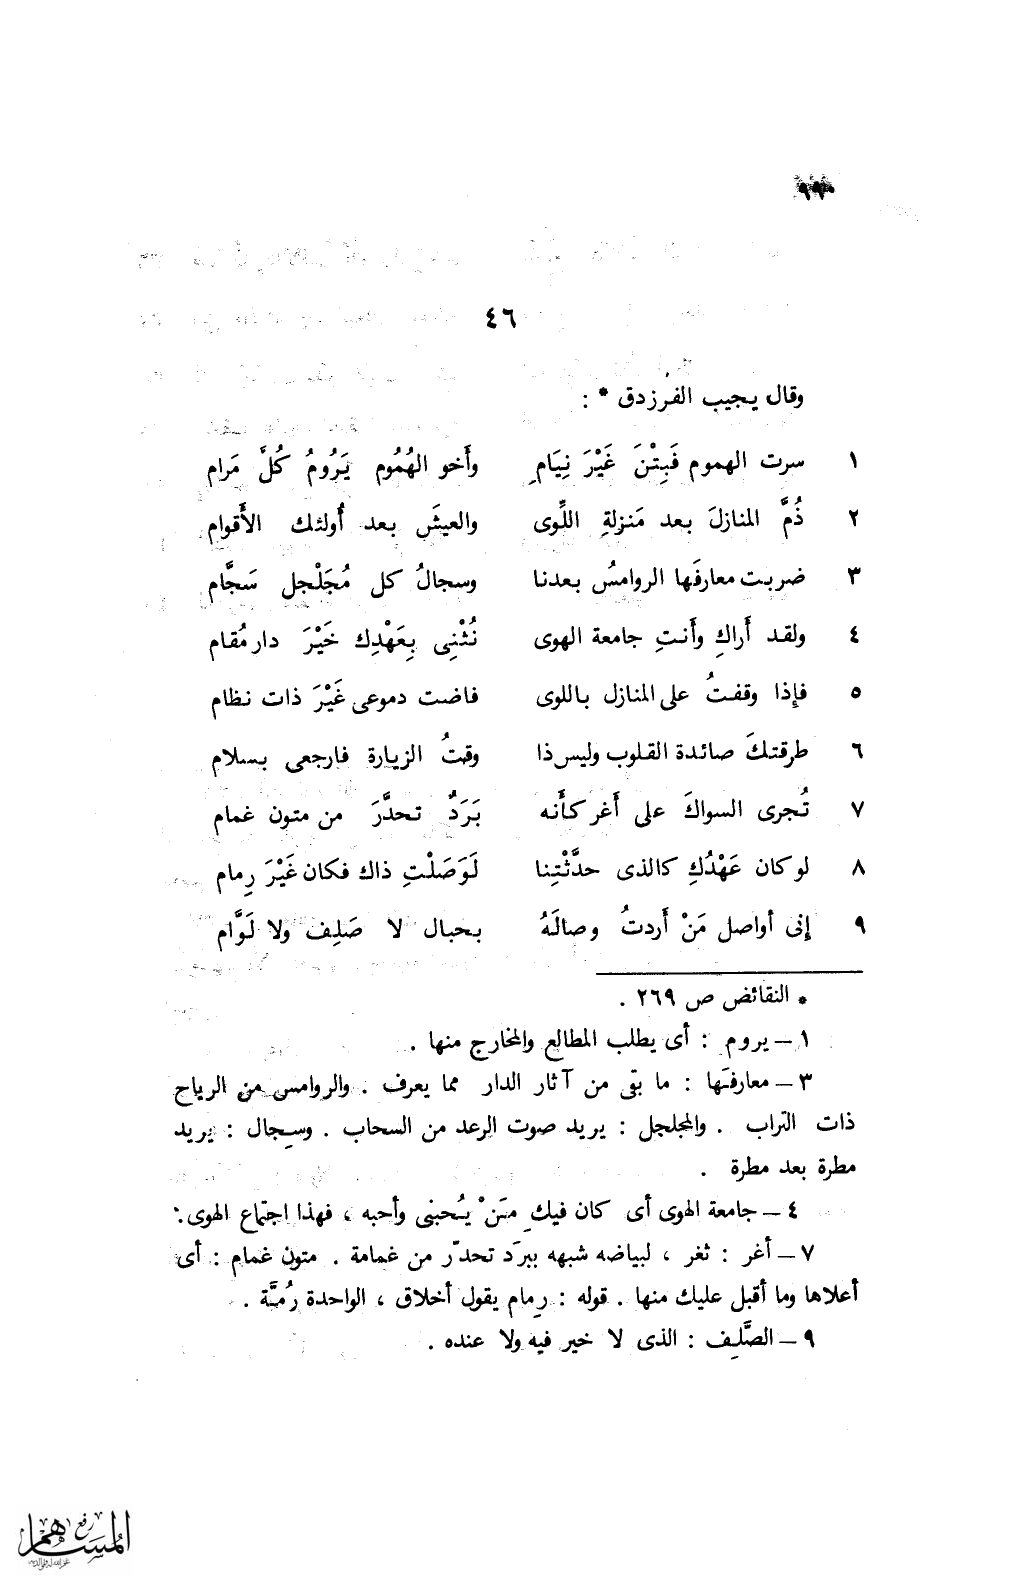 ٩٩٠
٤٦
وقال يجيب الفرزدق * :
١ سرت الهموم فَبِتْنَ غَيْرَ نِيَامِ وأَخو الهُمُوم يَرُومُ كُلَّ مَرام
٢ ذُمَّ المنازلَ بعد مَنزلةِ اللِّوى والعيشَ بعد أُولئك الأَقوام
٣ ضربت معارفَها الروامسُ بعدنا وسجالُ كل مُجَلْجل سَجَّام
٤ ولقد أَراكِ وأَنتِ جامعة الهوى نُثْنِى بِعَهْدِك خَيْرَ دار مُقام
٥ فإِذا وقفتُ على المنازل باللوى فاضت دموعى غَيْرَ ذات نظام
٦ طرقتكَ صائدة القلوب وليس ذا وقتُ الزيارة فارجعى بسلام
٧ تُجرى السواكَ على أَغر كأَنه بَرَدٌ تحدَّرَ من متون غمام
٨ لو كان عَهْدُكِ كالذى حدَّثْتِنا لَوَصَلْتِ ذاك فكان غَيْرَ رِمام
٩ إنى أواصل مَنْ أَردتُ وصالَهُ بحبال لا صَلِف ولا لَوَّام
* النقائض ص ٢٦٩ .
١ – يروم : أى يطلب المطالع والمخارج منها .
٣ – معارفَها : ما بقى من آثار الدار مما يعرف . والروامس من الرياح
ذات التراب . والمجلجل : يريد صوت الرعد من السحاب . وسِجال : يريد
مطرة بعد مطرة .
٤ – جامعة الهوى أى كان فيكِ مَنْ يُحبنى وأحبه ، فهذا اجتماع الهوى .
٧ – أغر : ثغر ، لبياضه شبهه ببرَد تحدّر من غمامة . متون غمام : أى
أعلاها وما أقبل عليك منها . قوله : رِمام يقول أخلاق ، الواحدة رُمَّة .
٩ – الصَّلِف : الذى لا خير فيه ولا عنده .
رفع
المساهم
غفر الله له ولوالديه